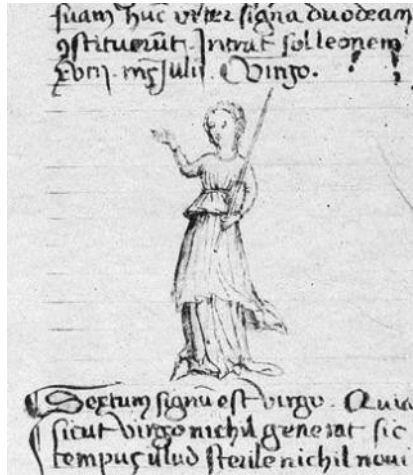 suam huc veter signa duodeam
ꝯstituerūt. Intrat sol leonem
Julii. Virgo.
Sextum signū est virgo. Quia
sicut virgo nichil generat sic
tempus illud sterile nichil noui